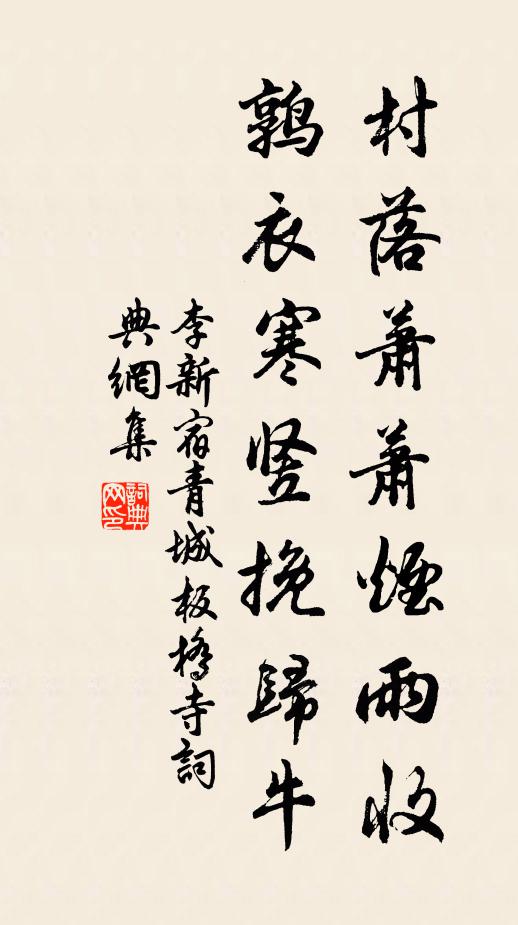 村落蕭蕭煙雨收
鶉衣寒竖挽歸牛
李新宿青城板橋寺詞
典網集
詞典
网印